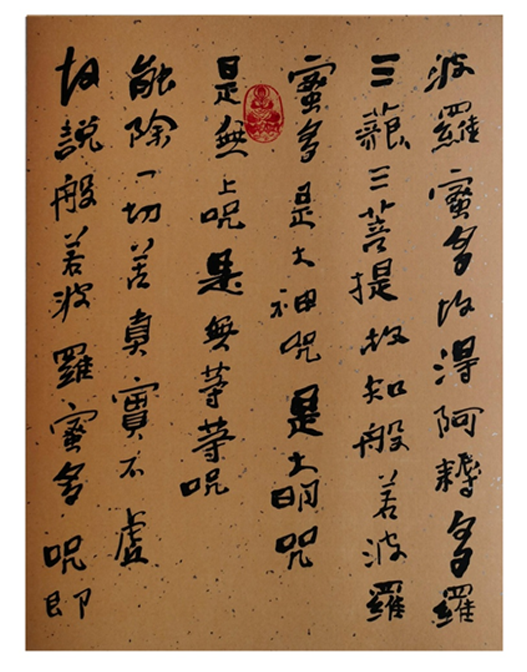 波羅蜜多故得阿耨多羅
三藐三菩提故知般若波羅
蜜多是大神咒是大明咒
是無上咒是無等等咒
能除一切苦真實不虛
故說般若波羅蜜多咒即